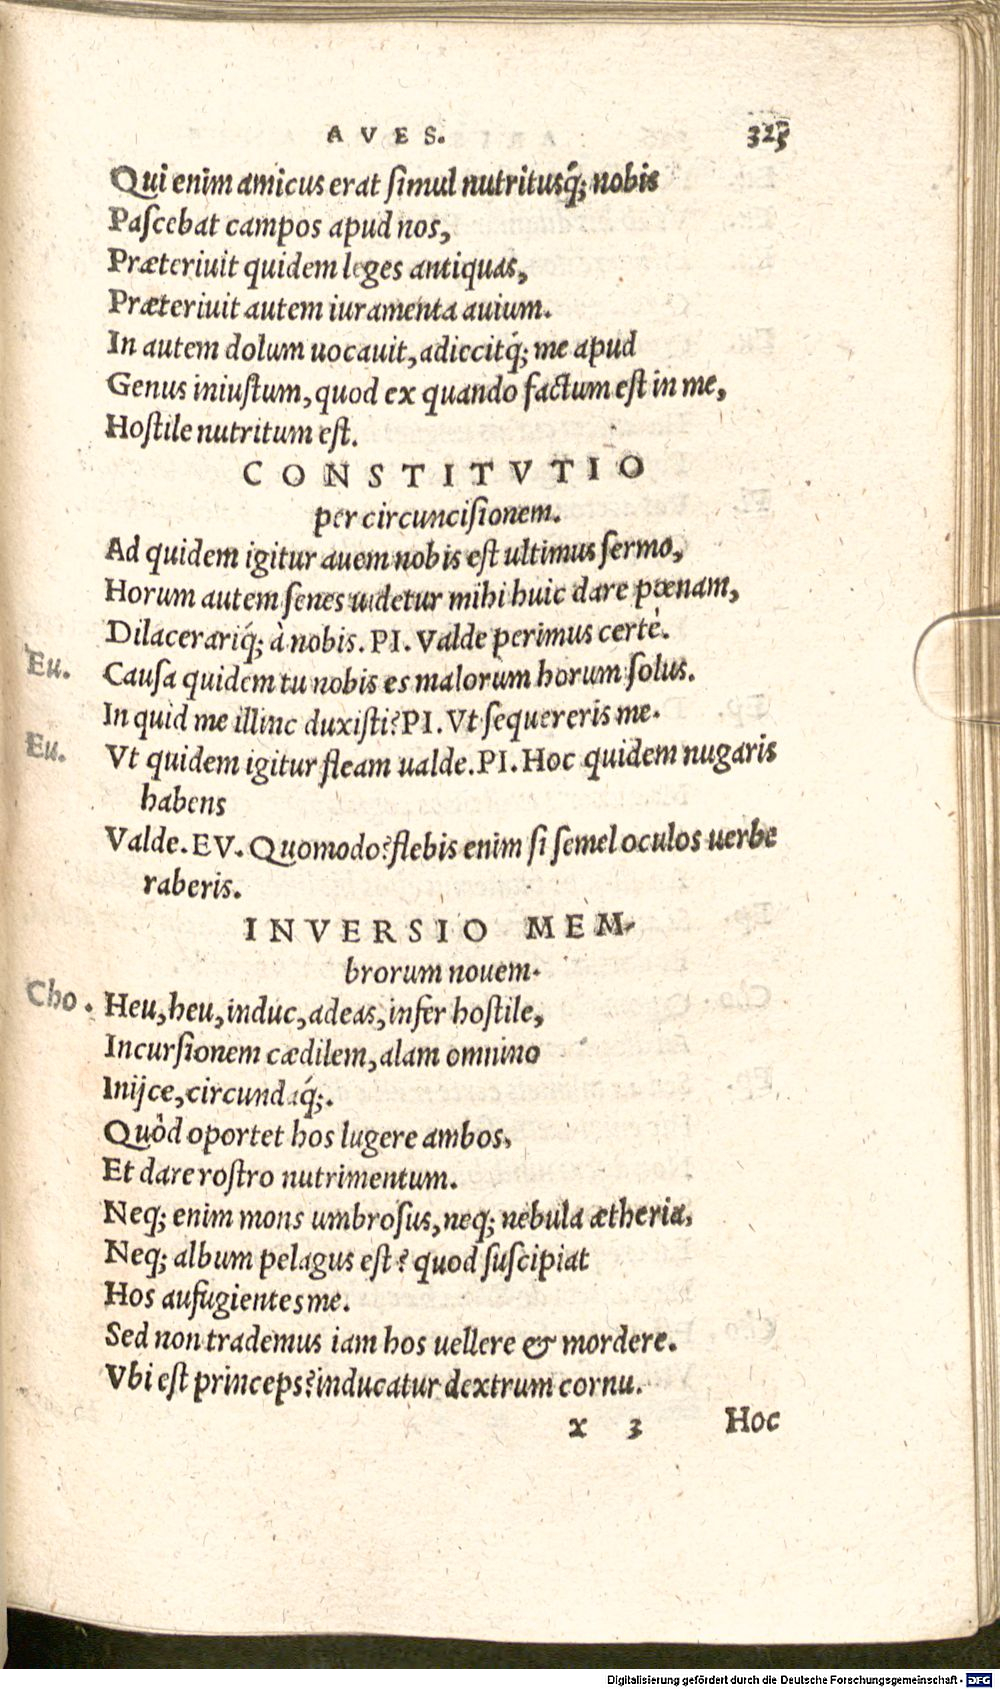 AVES. 325
Qui enim amicus erat simul nutritusq́; nobis
Pascebat campos apud nos,
Præteriuit quidem leges antiquas,
Præteriuit autem iuramenta auium.
In autem dolum uocauit, adiecitq́; me apud
Genus iniustum, quod ex quando factum est in me,
Hostile nutritum est.
CONSTITVTIO
per circuncisionem.
Ad quidem igitur auem nobis est ultimus sermo,
Horum autem senes uidetur mihi huic dare pœnam,
Dilacerariq́; à nobis. PI. Valde perimus certè.
Eu. Causa quidem tu nobis es malorum horum solus.
In quid me illinc duxisti? PI. Vt sequereris me.
Eu. Vt quidem igitur fleam ualde. PI. Hoc quidem nugaris
habens
Valde. EV. Quomodo? flebis enim si semel oculos uerbe
raberis.
INVERSIO MEM-
brorum nouem.
Cho. Heu, heu, induc, adeas, infer hostile,
Incursionem cædilem, alam omnino
Inijce, circundaq́;.
Quòd oportet hos lugere ambos,
Et dare rostro nutrimentum.
Neq; enim mons umbrosus, neq; nebula ætheria,
Neq; album pelagus est? quod suscipiat
Hos aufugientes me.
Sed non trademus iam hos uellere & mordere.
Vbi est princeps? inducatur dextrum cornu.
x 3 Hoc
Digitalisierung gefördert durch die Deutsche Forschungsgemeinschaft - DFG